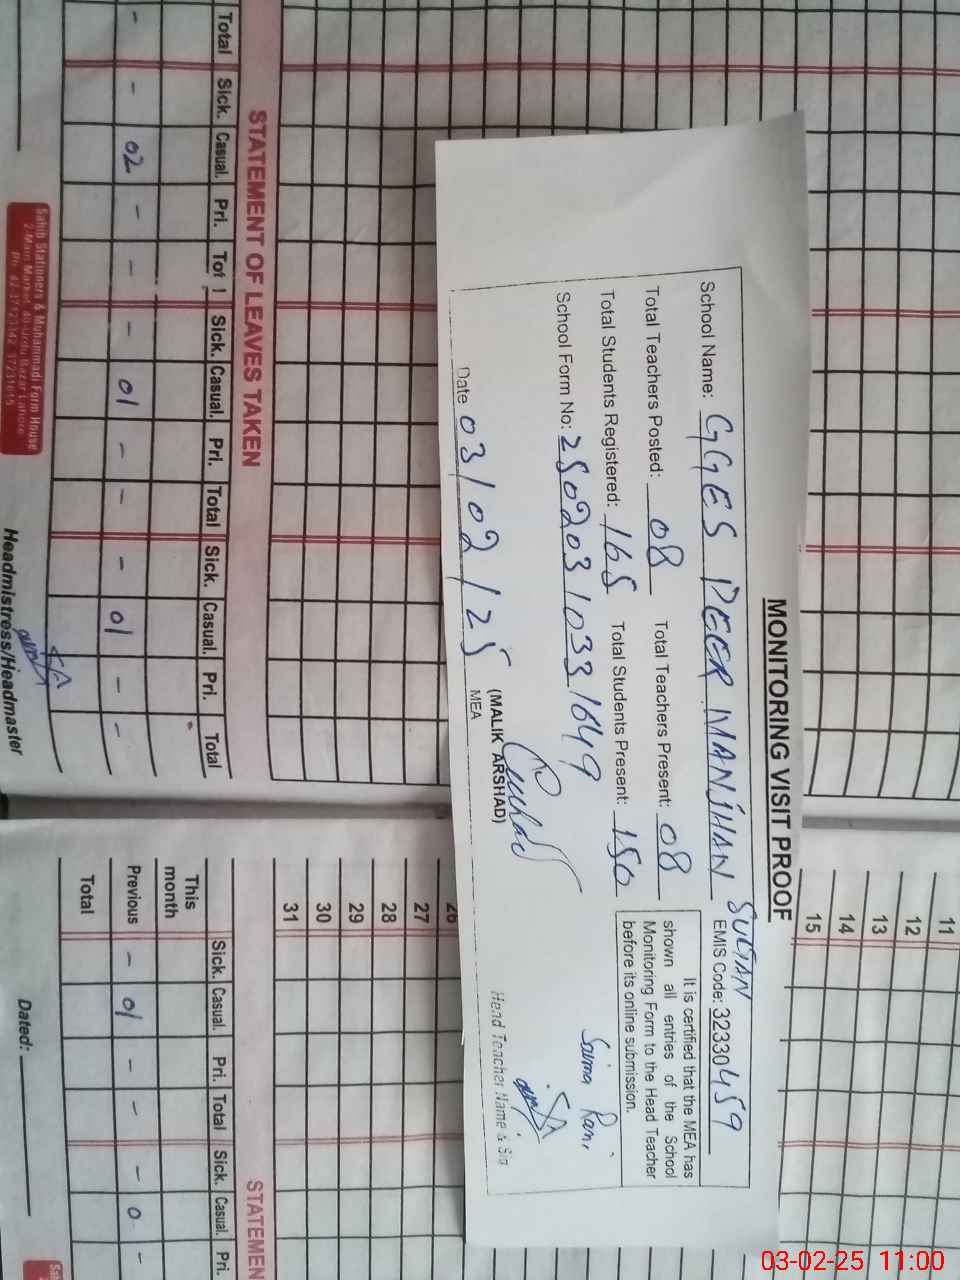 MONITORING VISIT PROOF
School Name: GGES PEER MANJHAN SULTAN EMIS Code: 32330459
Total Teachers Posted: 08 Total Teachers Present: 08
Total Students Registered: 165 Total Students Present: 150
School Form No: 25020310331649
It is certified that the MEA has
shown all entries of the School
Monitoring Form to the Head Teacher
before its online submission.
Date 03/02/25
(MALIK ARSHAD)
MEA
Saima Rani
Head Teacher Name & Sig
STATEMENT OF LEAVES TAKEN
Total Sick. Casual. Pri. Tot l Sick. Casual. Pri. Total Sick. Casual. Pri. Total
- - 02 - - - 01 - - - 01 - -
Headmistress/Headmaster
Sahib Stationers & Muhammadi Form House
2-Main Market, 40-Urdu Bazar Lahore
11
12
13
14
15
26
27
28
29
30
31
STATEMEN
Sick. Casual. Pri. Total Sick. Casual. Pri.
This month
Previous - 01 - - - 0 -
Total
Dated:
03-02-25 11:00